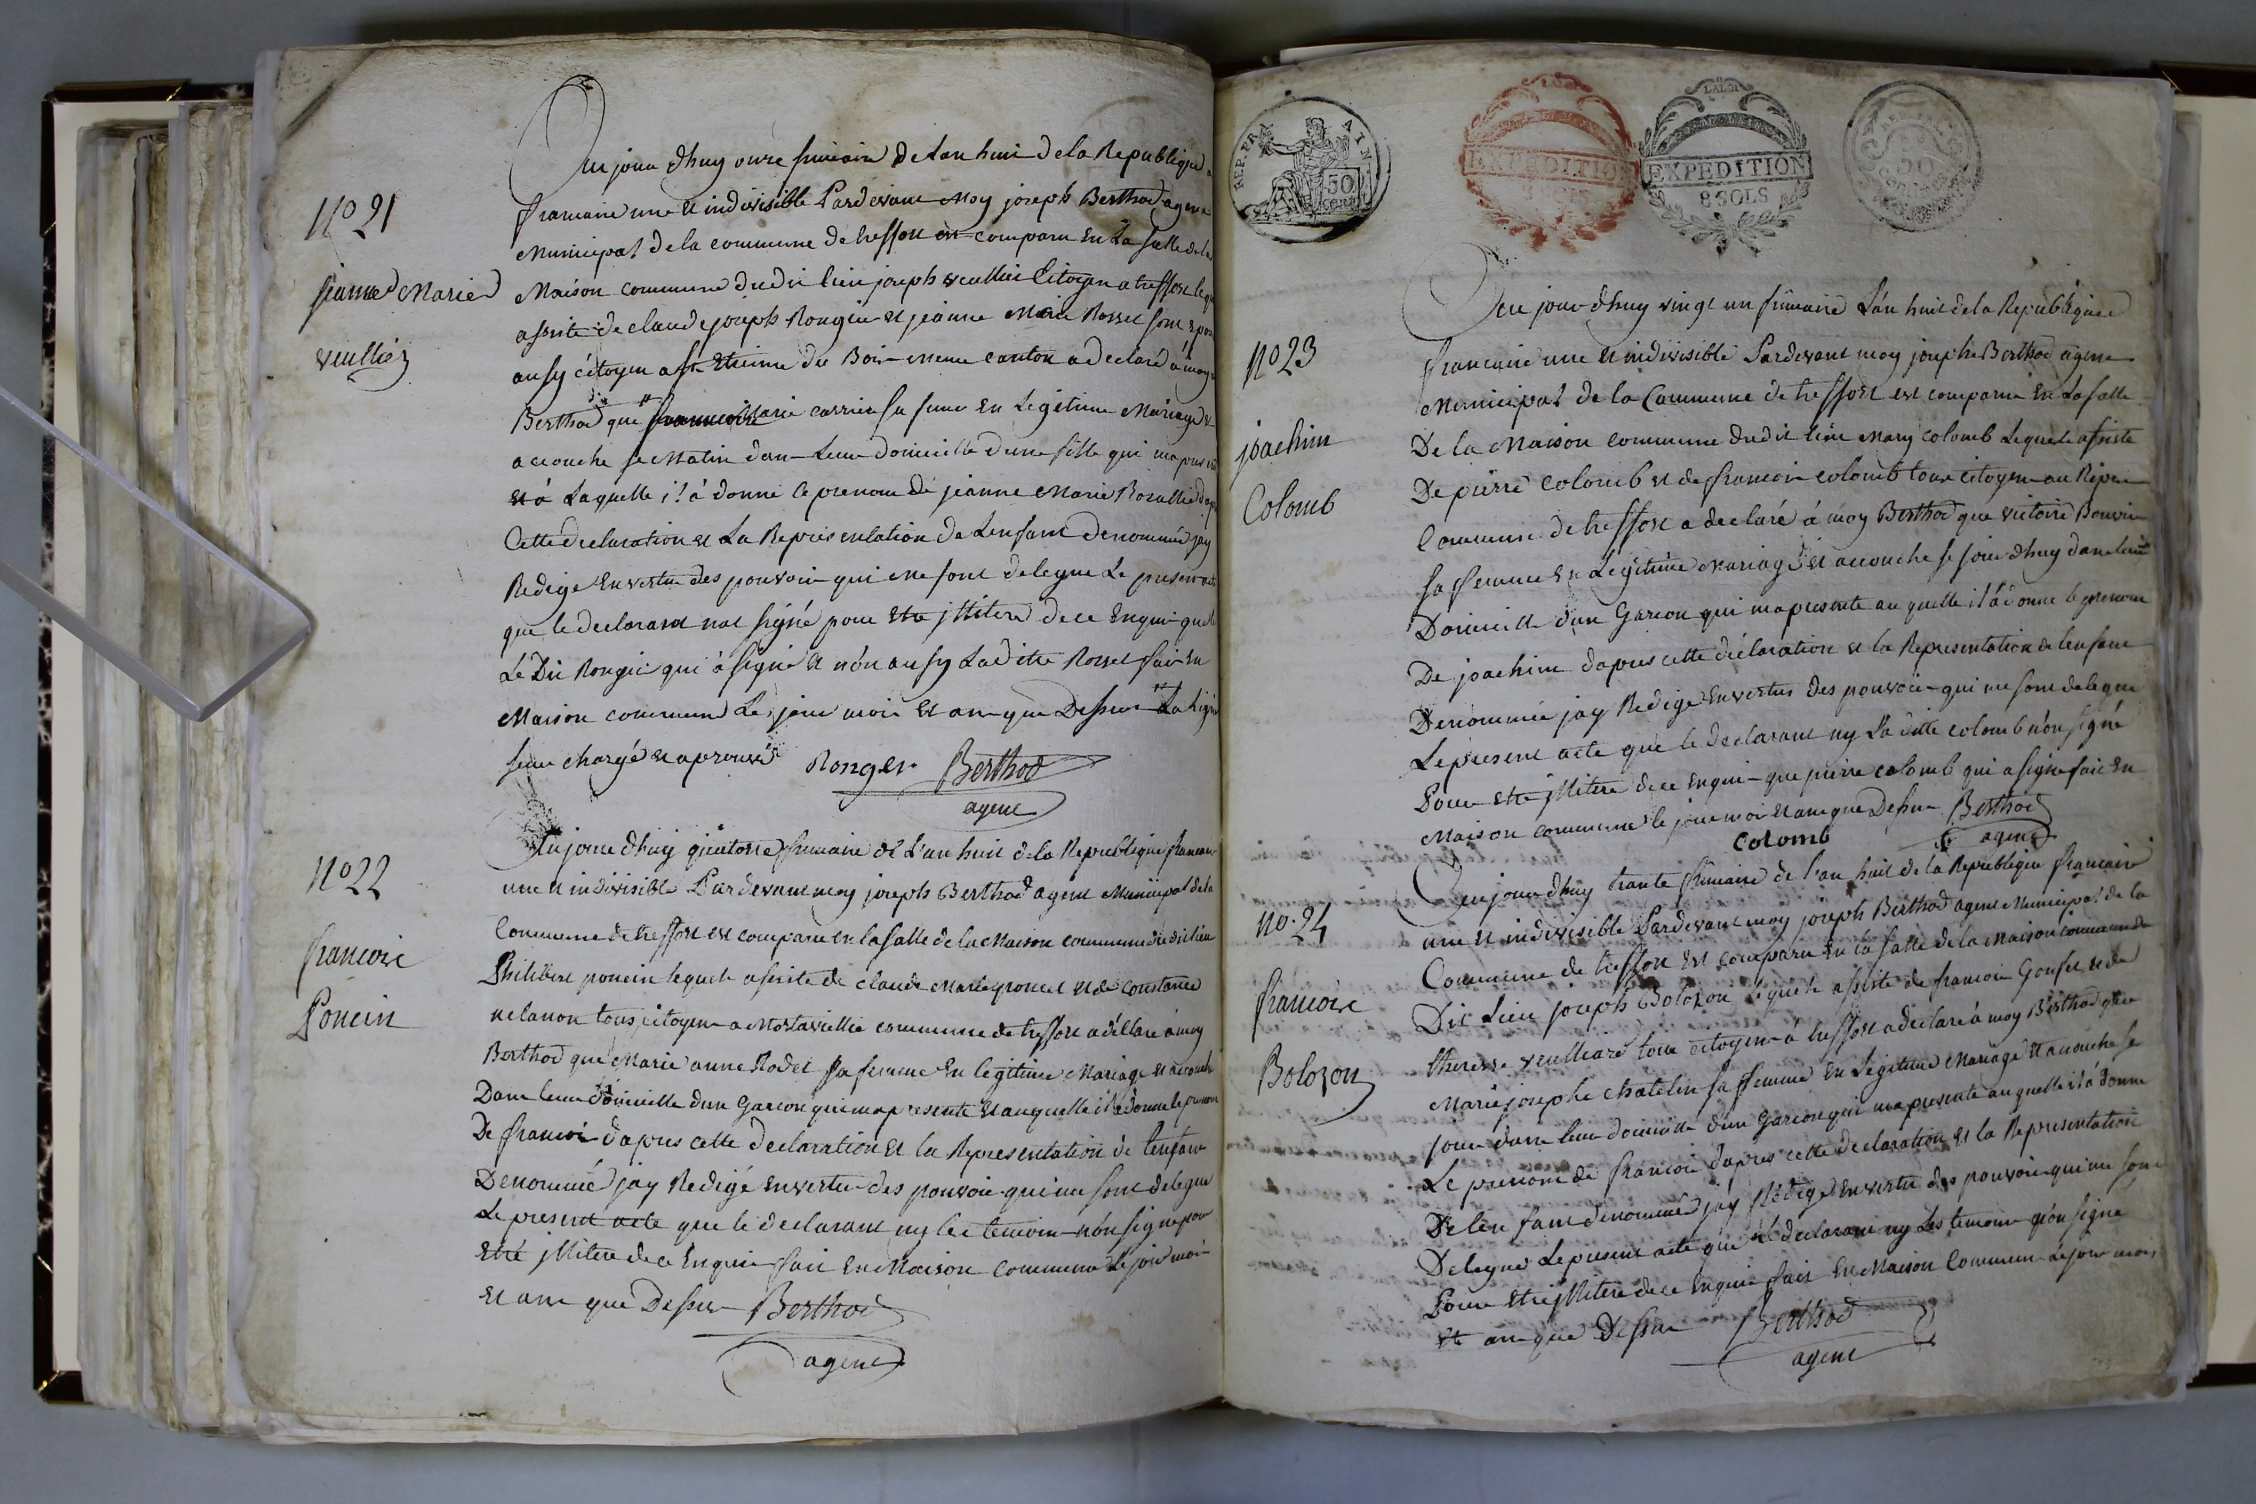 Nº 21
jeanne Marie
veullier
Au jour dhuy onze frimaire de lan huit de la Republique
francaine une et indivisible Pardevant Moy joseph Berthod agent
Municipal de la commune de treffort est comparu En La salle de la
Maison commune dudit lieu joseph veullier Citoyen a treffort lequel
assisté de claude joseph Rongier et jeanne Marie Rosset son epouse
ausy citoyen a st Etienne du Bois meme canton a declaré à moy
Berthod que francoise Marie carrier sa femme En Legitime Mariage et
accouche se Matin dan Leur domicille dune fille qui ma presenté
et à Laquelle il à donné le prenom de jeanne Marie Rosallie dapres
Cette declaration et La Representation de Lenfant denommé jay
Redigé En vertu des pouvoir qui me sont delegue Le present acte
que le declarant nat signé pour Etre jllitere de ce Enquis que
Le Dit Rongier qui à signé et non ausy Laditte Rosset fait En
Maison commune Le jour moir et an que Dessur La ligne
seur chargé et aprouvé Ronger Berthod
agent
Nº 22
francoir
Poncin
Au jour dhuy quatorze frimaire de L'an huit de la Republique francaise
une et indivisible Pardevant moy joseph Berthod agent Municipal de la
Commune de treffort est comparu en la salle de la Maison commune du dit lieu
Philibert poncin lequel assisté de claude Marie poncet et de Constance
nelanon tous citoyen a Montavellie commune de treffort a déclaré à moy
Berthod que Marie anne Rodet sa femme En legitime Mariage et accouché
Dans leur domicille dun Garcon qui ma presenté et auquelle il a donné le prenom
De francoi dapres cette declaration et la Representation de lenfant
Denommé jay Redigé En vertu des pouvoir qui me sont delegue
Le present acte que le declarant ny les temoin non signe pour
Etre jllitere de ce Enquis fait En Maison commune Le jour moi
et an que Dessur Berthod
agent
REP. FRA. AIN
50
CENT.
EXPEDITION
8 SOLS
EXPEDITION
8 SOLS
50
Nº 23
joachim
Colomb
Au jour dhuy vingt un frimaire L'an huit de la Republique
francaine une et indivisible Pardevant moy joseph Berthod agent
Municipal de la Commune de treffort est comparu En La salle
De la Maison commune dudit lieu Mary colomb Lequel assisté
De pierre colomb et de francoir colomb tour citoyen au Ripes
Commune de treffort a declaré à moy Berthod que victoire Bouvier
sa femme En Legitime Mariagé et accouché se jour dhuy dan leur
Domicille dun Garcon qui ma presenté au quelle il à donné le prenom
De joachim dapres cette déclaration et la Representation de lenfant
Denommée jay Redigé En vertus des pouvoir qui me sont delegue
Le present acte que le declarant ny La ditte colomb non signé
Pour Etre jllitere de ce Enquis que pierre colomb qui a signe fait En
Maison commune le jour moi et an que Dessur Berthod
Colomb agent
no. 24
francoise
Bolozon
Au jour dhuy trante frimaire de l'an huit de la Republique francaire
une et indivisible Pardevant moy joseph Berthod agent Municipal de la
Commune de treffort Est comparu En la salle de la Maison commune du
Dit Lieu joseph Bolozon lequel assisté de francoir Goufet et de
therese veulliard tour citoyen à treffort a declaré à moy Berthod que
Marie josephe chatelin sa femme En Légitime Mariage et accouché se
jour dan leur domicille dun Garcon qui ma presenté au quelle il à donné
Le prenom de francoi dapres cette declaration et la Representation
De len fant denommé jay Rédigé En vertu des pouvoir qui me sont
Delegué Le present acte que le declarant ny Les temoin non signe
Pour Etre jllitere de ce Enquis fait En Maison Commun Le jour moi
et an que Dessur Berthod
agent